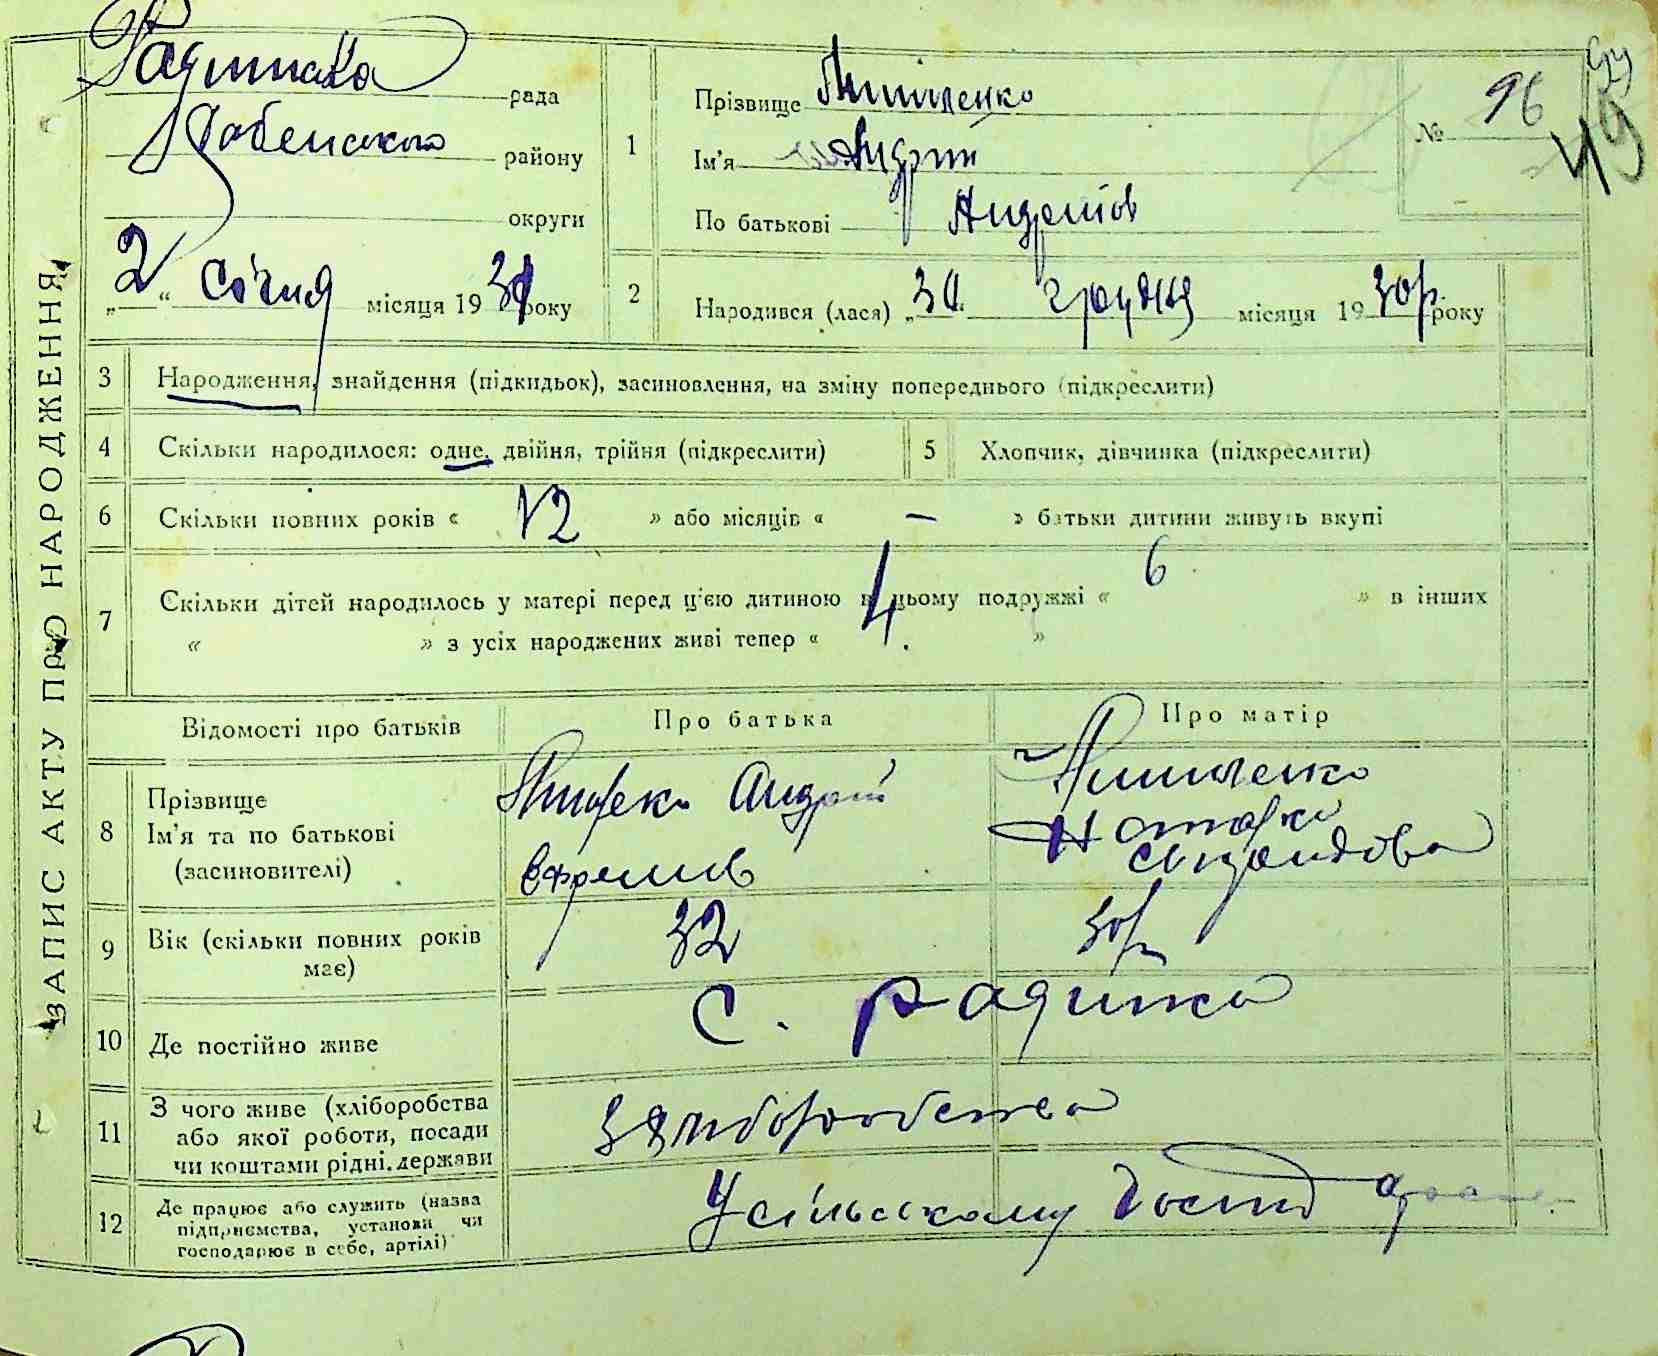 ЗАПИС АКТУ ПРО НАРОДЖЕННЯ
рада
району
округи
„2“ Січня місяця 1931 року
1
Прізвище
Ім'я Андрій
По батькові Андреїов
№ 96
49
2
Народився (лася) „30 грудня місяця 1930р року
3 Народження, знайдення (підкидьок), засиновлення, на зміну попереднього (підкреслити)
4 Скільки народилося: одне, двійня, трійня (підкреслити)
5 Хлопчик, дівчинка (підкреслити)
6 Скільки повних років « 12 » або місяців « — » батьки дитини живуть вкупі
7 Скільки дітей народилось у матері перед ц'єю дитиною в цьому подружжі « 6 » в інших
« » з усіх народжених живі тепер « 4. »
Відомості про батьків
Про батька
Про матір
8 Прізвище
Ім'я та по батькові
(засиновителі)
Андрій
9 Вік (скільки повних років
має)
32
30р
10 Де постійно живе
с.
11 З чого живе (хліборобства
або якої роботи, посади
чи коштами рідні, держави
12 Де працює або служить (назва
підприємства, установи чи
господарює в себе, артілі)
У сільському